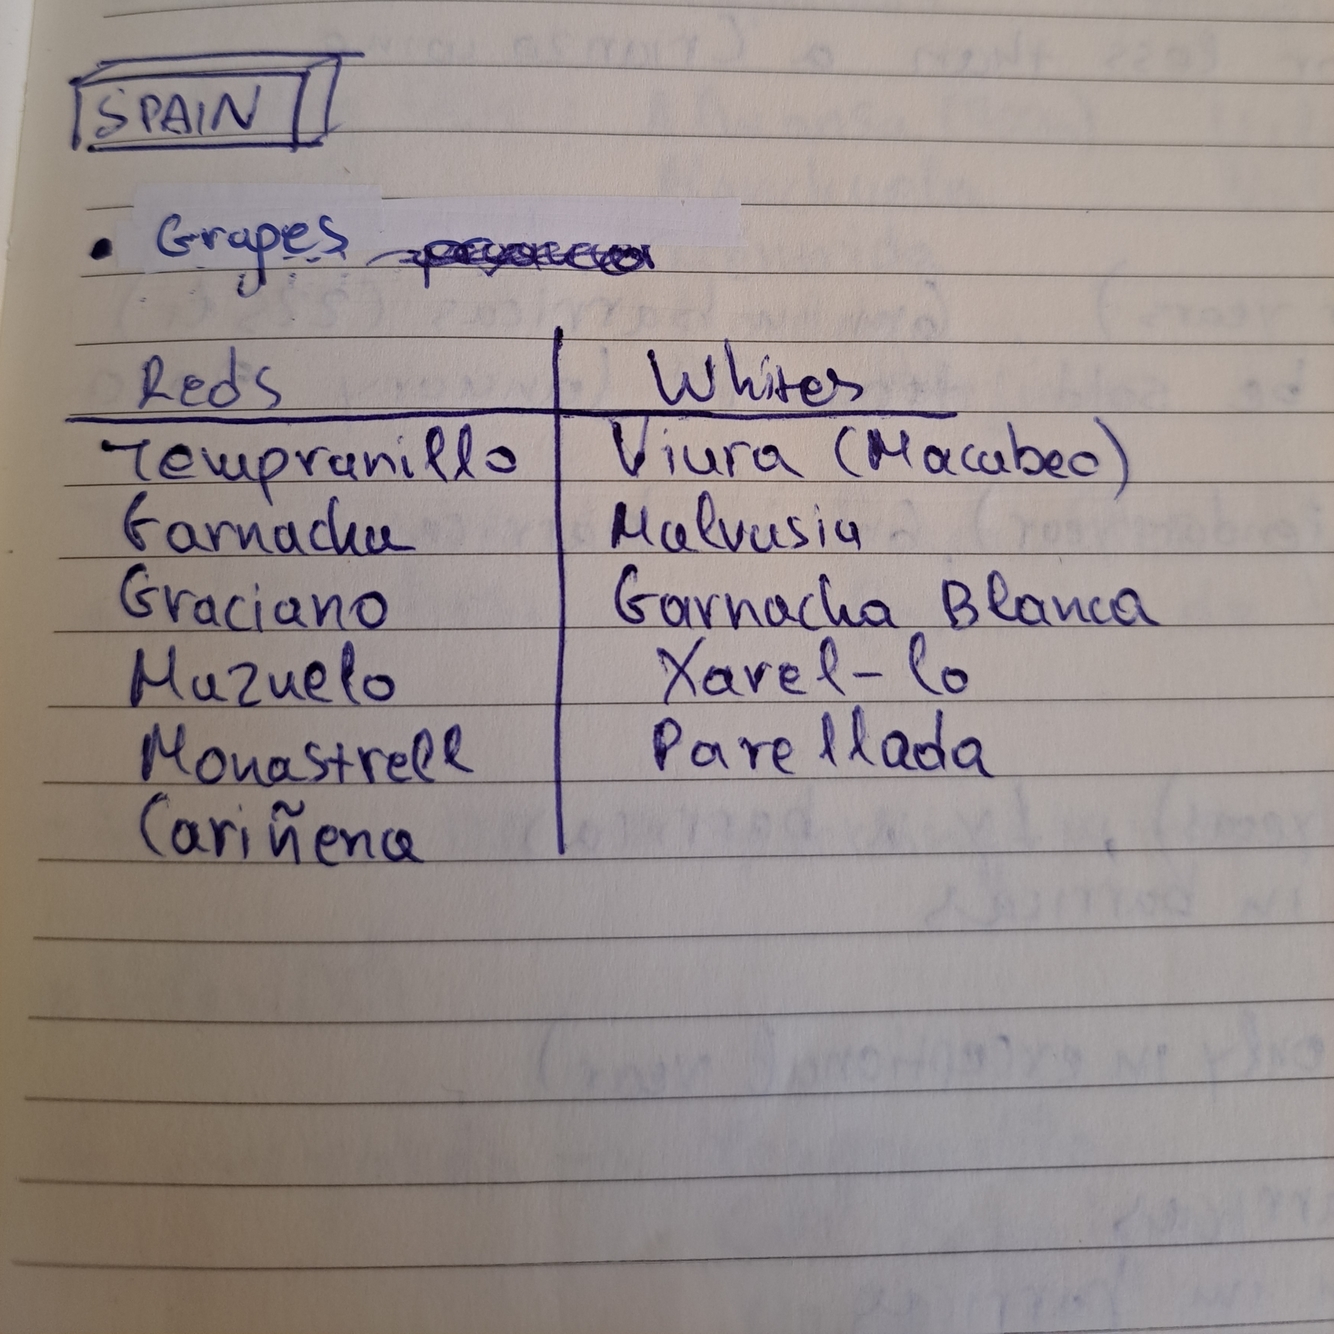 SPAIN
• Grapes
Reds Whites
Tempranillo Viura (Macabeo)
Garnacha Malvasia
Graciano Garnacha Blanca
Mazuelo Xarel-lo
Monastrell Parellada
Cariñena